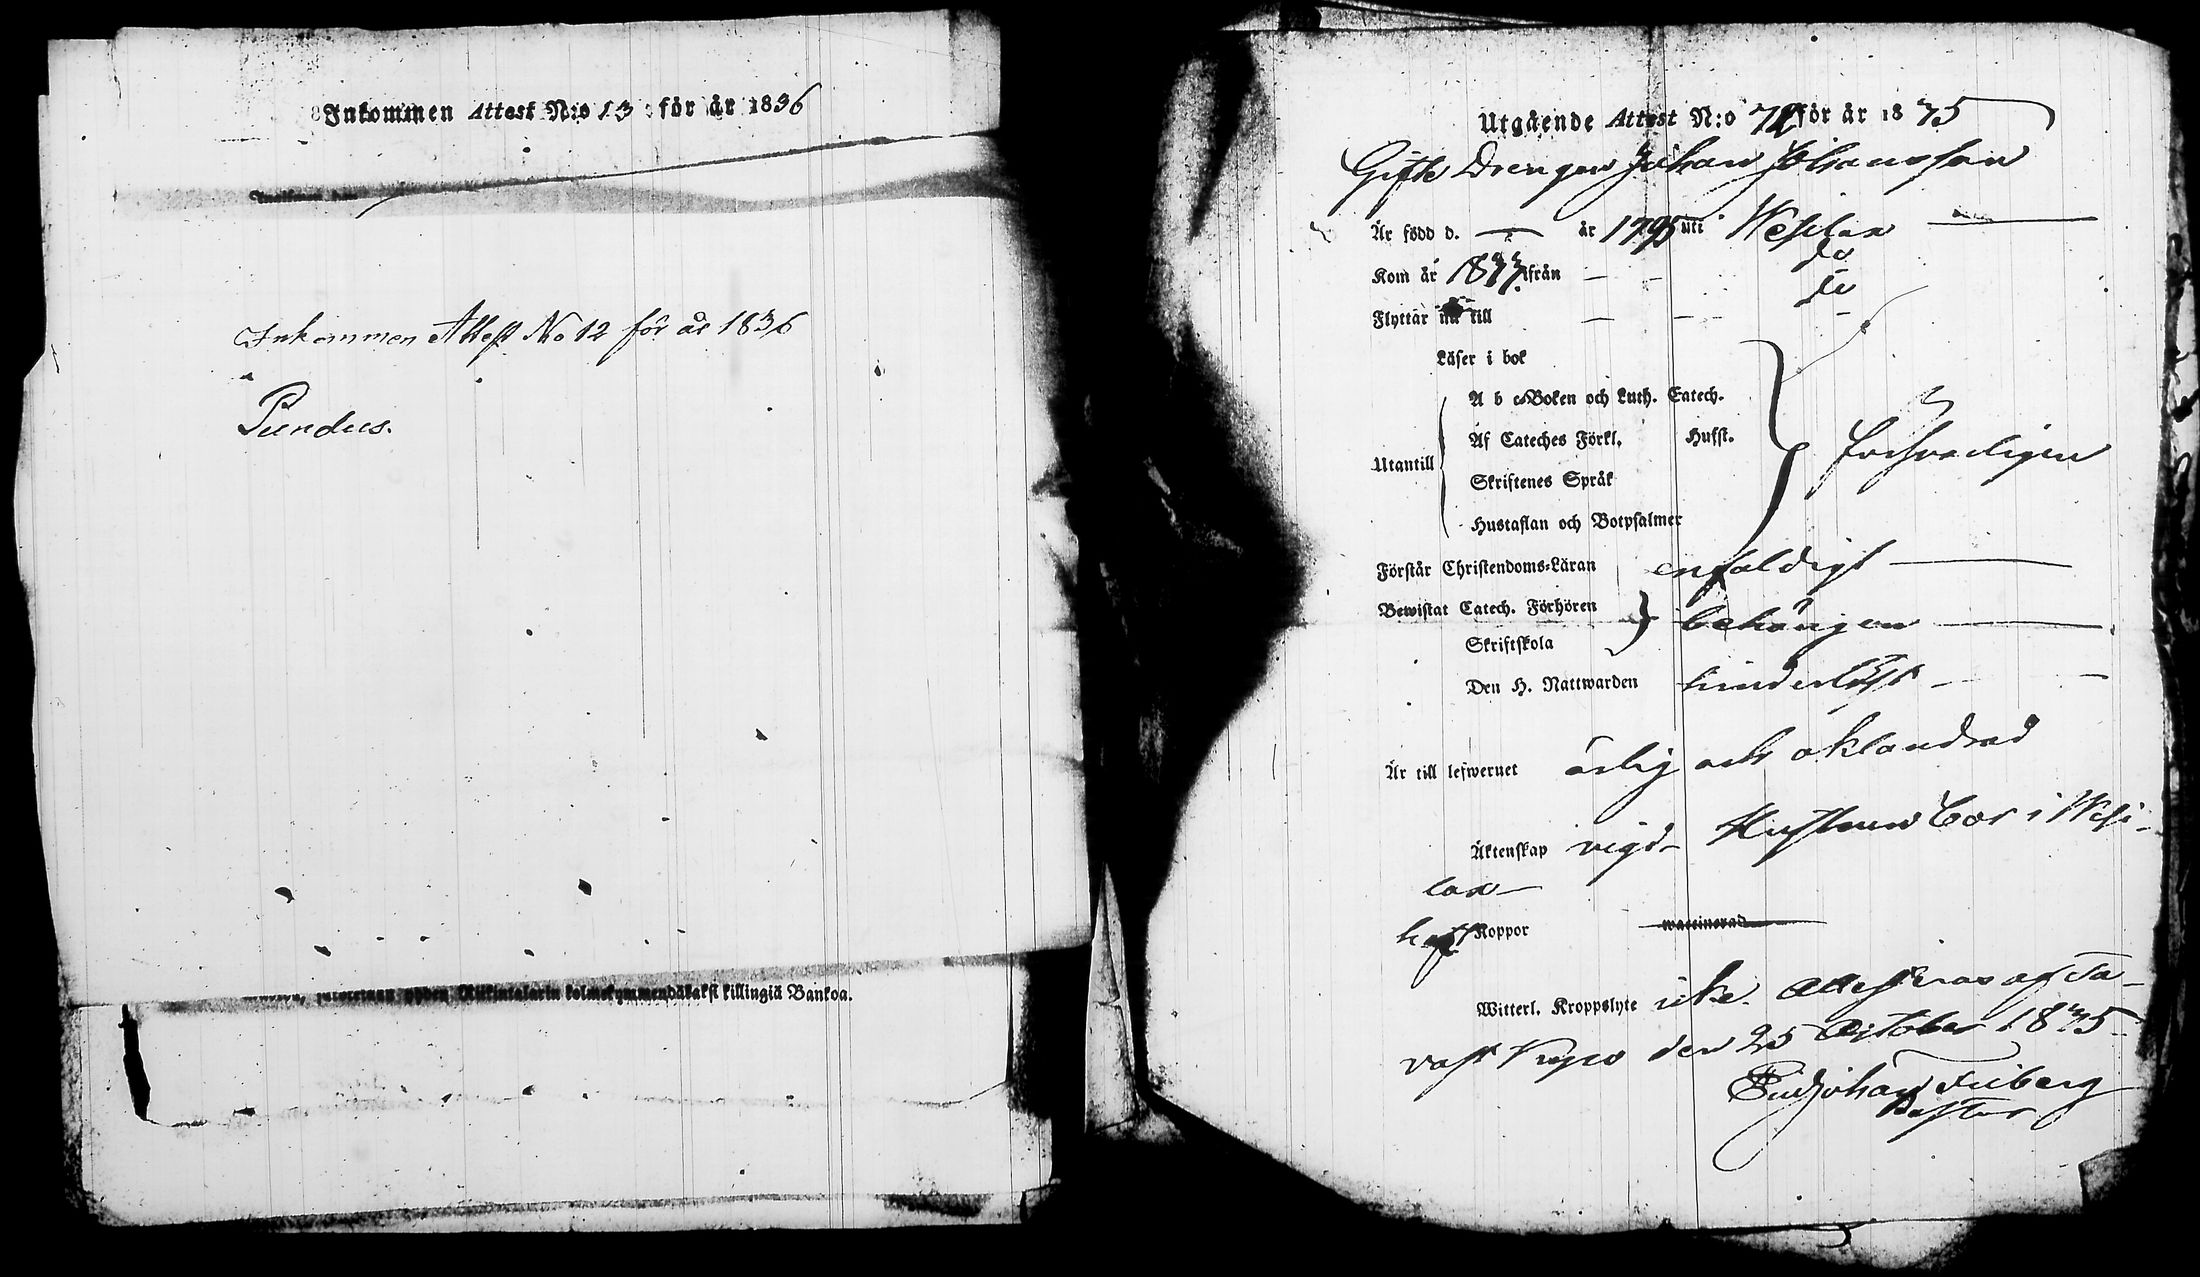 Inkommen Attest N:o 13 för år 1836
Inkommen Attest No 12 för år 1836
Pundus.
kolmekymmendäkaksi killingiä Bankoa.
Utgående Attest N:o 72 för år 1835
Gifte Drengen Johan Johansson
Är född d. — år 1795 uti Wesilax —
Kom år 1833 ifrån — — do
Flyttar nu till — — do
Läser i bok
A b c-Boken och Luth. Catech.
Af Cateches Förkl. Husst.
Utantill
Skriftenes Språk försvarligen
Hustaflan och Botpsalmer
Förstår Christendoms-Läran enfaldigt —
Bewistat Catech. Förhören behörigen —
Skriftskola
Den H. Nattwarden hinderlöst — —
Är till lefwernet ärlig och oklandrad
Äktenskap vigd. Hustrun bor i Wesi-
lax —
haft Koppor waccinerad
Witterl. Kroppslyte icke. Attesteras af Ta-
vast Kyro den 25 October 1835.
Johan Friberg
Pastor